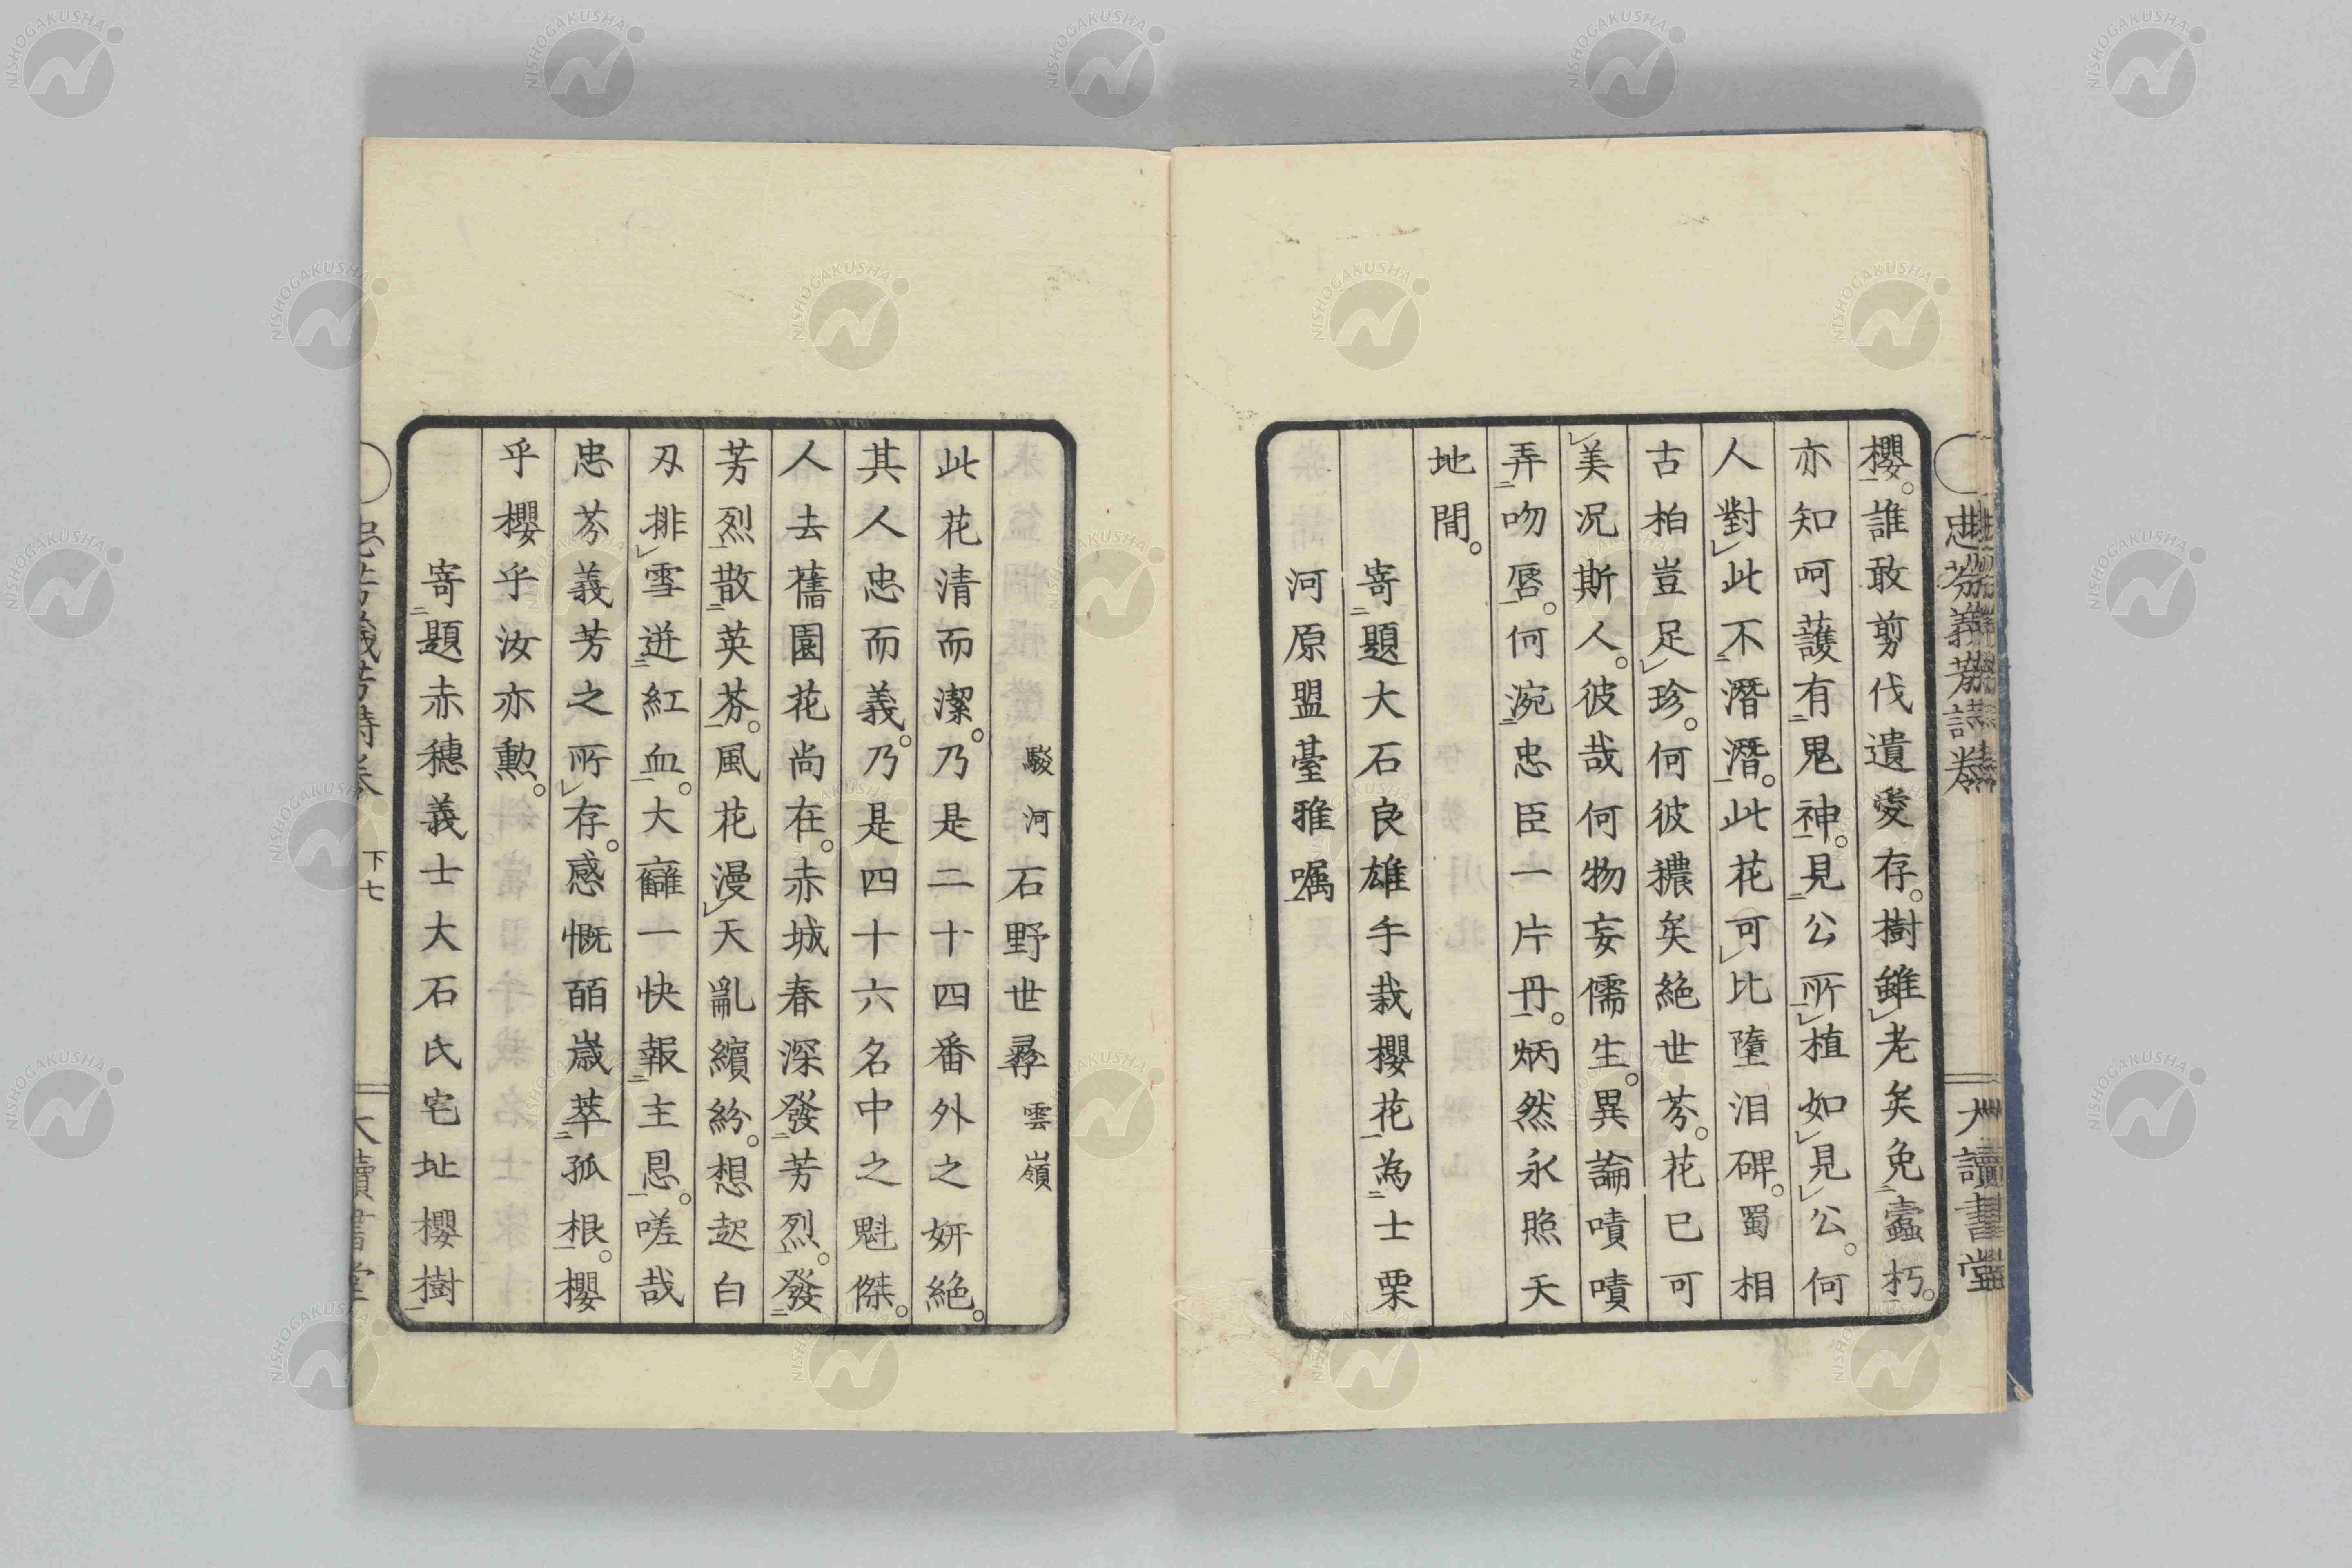 忠芬義芳詩卷
大讀書堂
櫻。誰敢剪伐遺愛存。樹雖老矣免蠹朽。
亦知呵護有鬼神。見公所植如見公。何
人對此不潛潛。此花可比墮淚碑。蜀相
古柏豈足珍。何彼穠矣絕世芬。花已可
美況斯人。彼哉何物妄儒生。異論嘖嘖
弄吻唇。何涴忠臣一片丹。炳然永照天
地間。
寄題大石良雄手栽櫻花為士栗
河原盟臺雅囑
駿河石野世彞雲嶺
此花清而潔。乃是二十四番外之妍絕。
其人忠而義。乃是四十六名中之魁傑。
人去舊園花尚在。赤城春深發芳烈。發
芳烈散英芬。風花漫天亂繽紛。想起白
刃排雪迸紅血。大讎一快報主恩。嗟哉
忠芬義芳之所存。感慨百歲萃孤根。櫻
乎櫻乎汝亦勳。
寄題赤穗義士大石氏宅址櫻樹
忠芬義芳詩卷
下七
大讀書堂